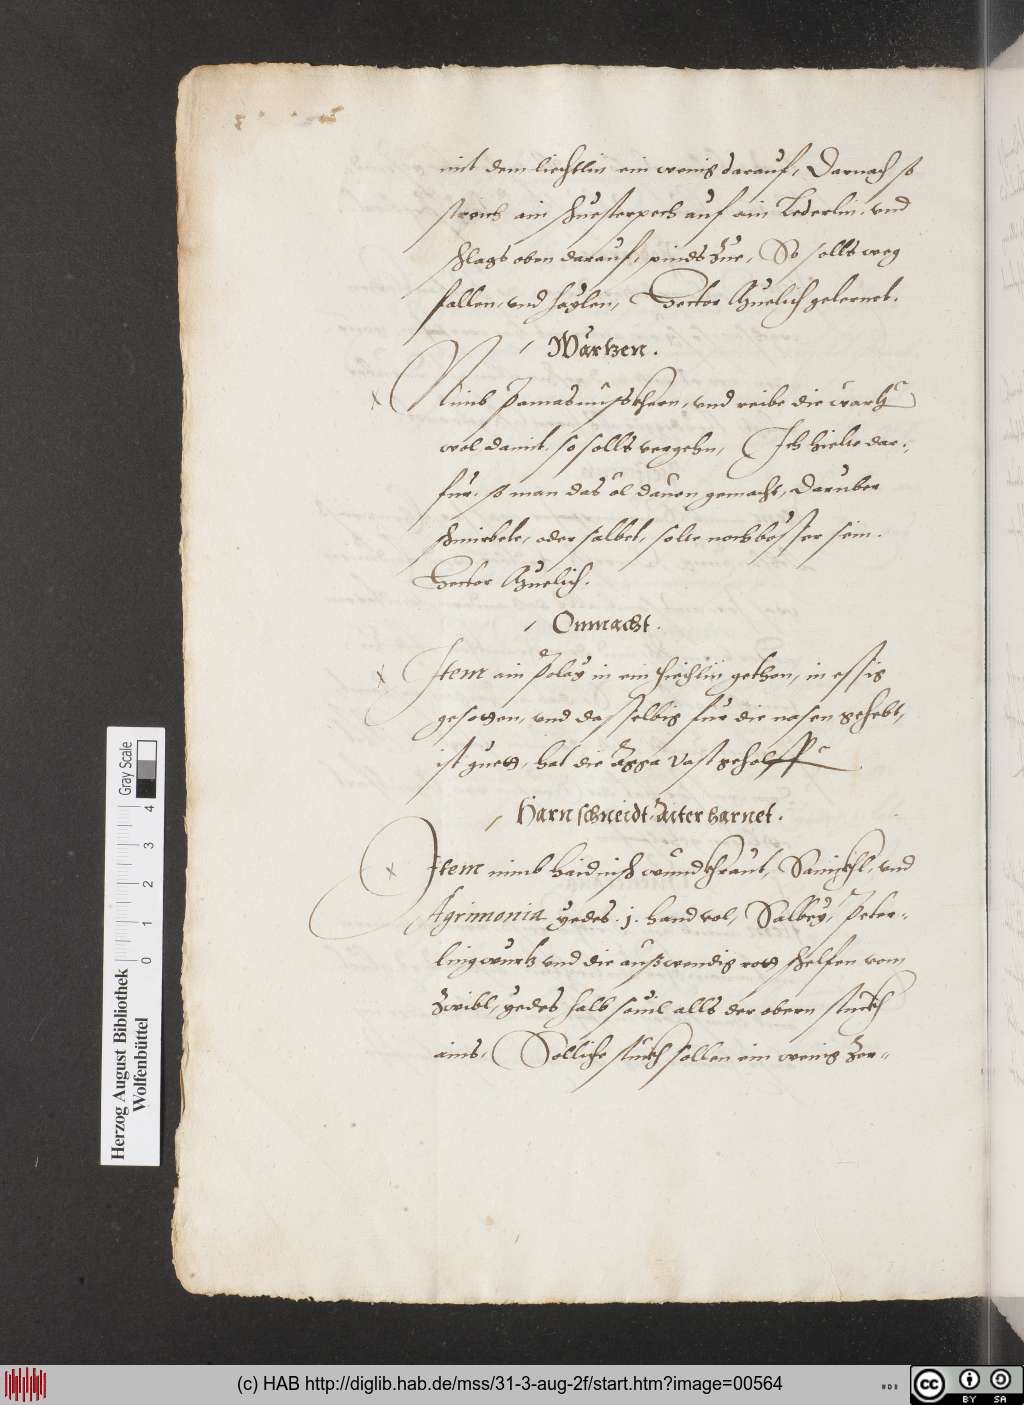 mit dem liechtlin ein wenig darauf, Darnach so
streich ain schuesterpech auf ain Lederlin, vnd
schlags oben darauf, pinds zue, So sollts weg
fallen, vnd haylen, Hector Muelich gelernet.
Wartzen.
Nimb Pomas nusskhern, vnd reibe die wartz
wol damit. so solls vergehn, Ich hielte dar-
fur. so man das öl dauon gemacht, Daruber
schmirbete, oder salbet, solte noch besser sein.
Hector Muelich.
Onmacht.
Item ain Poley in ein tiechlin gethon, in essig
gesotten, vnd dasselbig fur die nasen gehebt,
ist guett, hat die vast geholffen
Harnschneidt. Aiter harnet.
Item nimb haidnisch wundkhraut, Sanickhl, vnd
Agrimonia yedes .j. hand vol, Salbey, Peter-
lingwurtz vnd die außwendig rott schelfen vom
Zwibl, yedes halb souil alls der obern stuckh
ains, Solliche stuckh sollen ein wenig zer-
Herzog August Bibliothek
Wolfenbüttel
0 1 2 3 4
Gray Scale
(c) HAB http://diglib.hab.de/mss/31-3-aug-2f/start.htm?image=00564
cc
BY SA